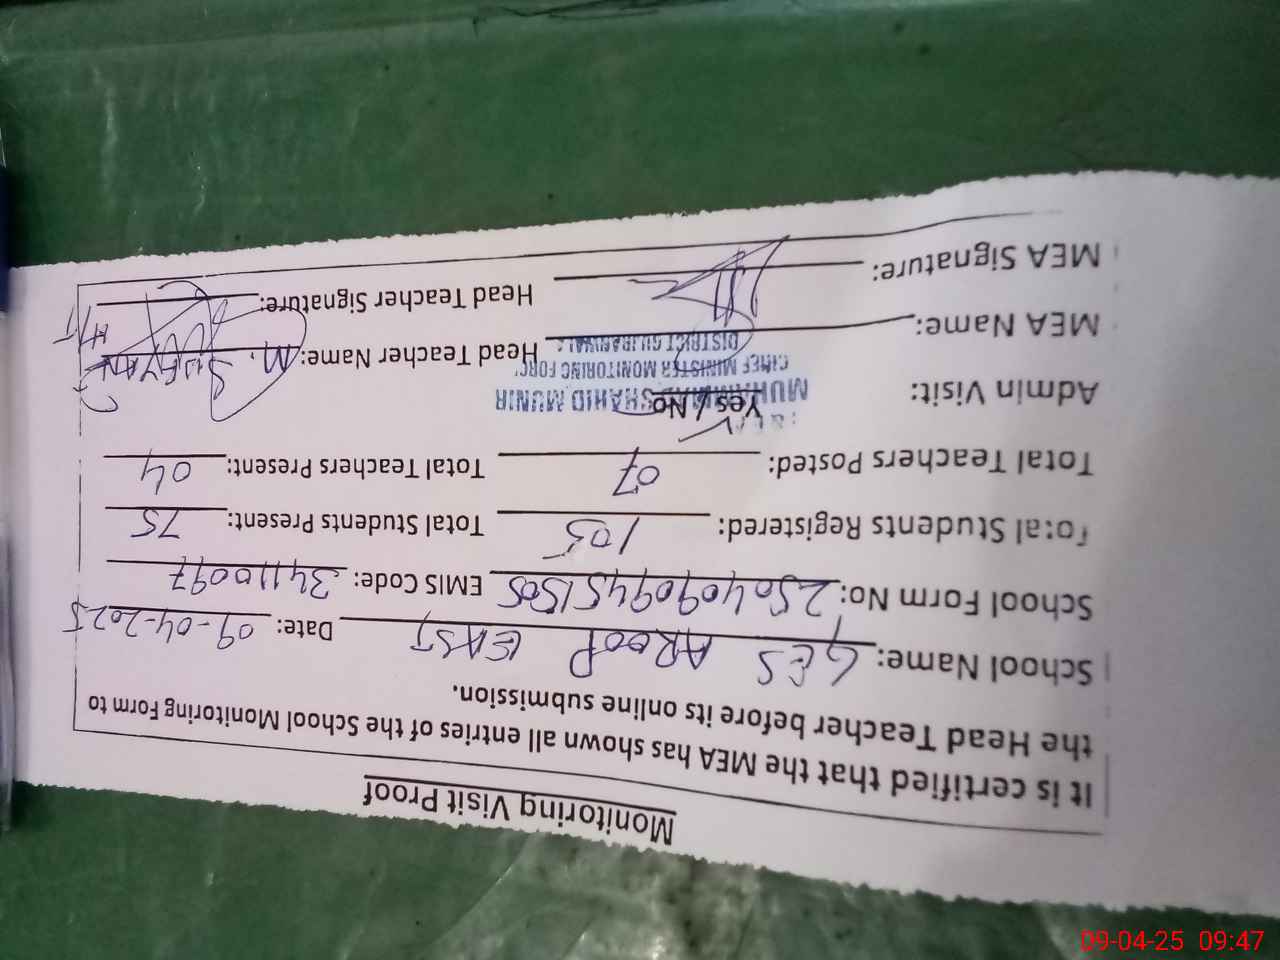 Monitoring Visit Proof
It is certified that the MEA has shown all entries of the School Monitoring Form to
the Head Teacher before its online submission.
School Name: GES AROOP EAST Date: 09-04-2025
School Form No: 25040909451505 EMIS Code: 34110097
Total Students Registered: 105 Total Students Present: 75
Total Teachers Posted: 07 Total Teachers Present: 04
Admin Visit: Yes / No
MUHAMMAD SHAHID MUNIR
CHIEF MINISTER MONITORING FORCE
DISTRICT GUJRANWALA
MEA Name: Head Teacher Name: M. SUFYAN
MEA Signature: Head Teacher Signature:
H/T
09-04-25 09:47